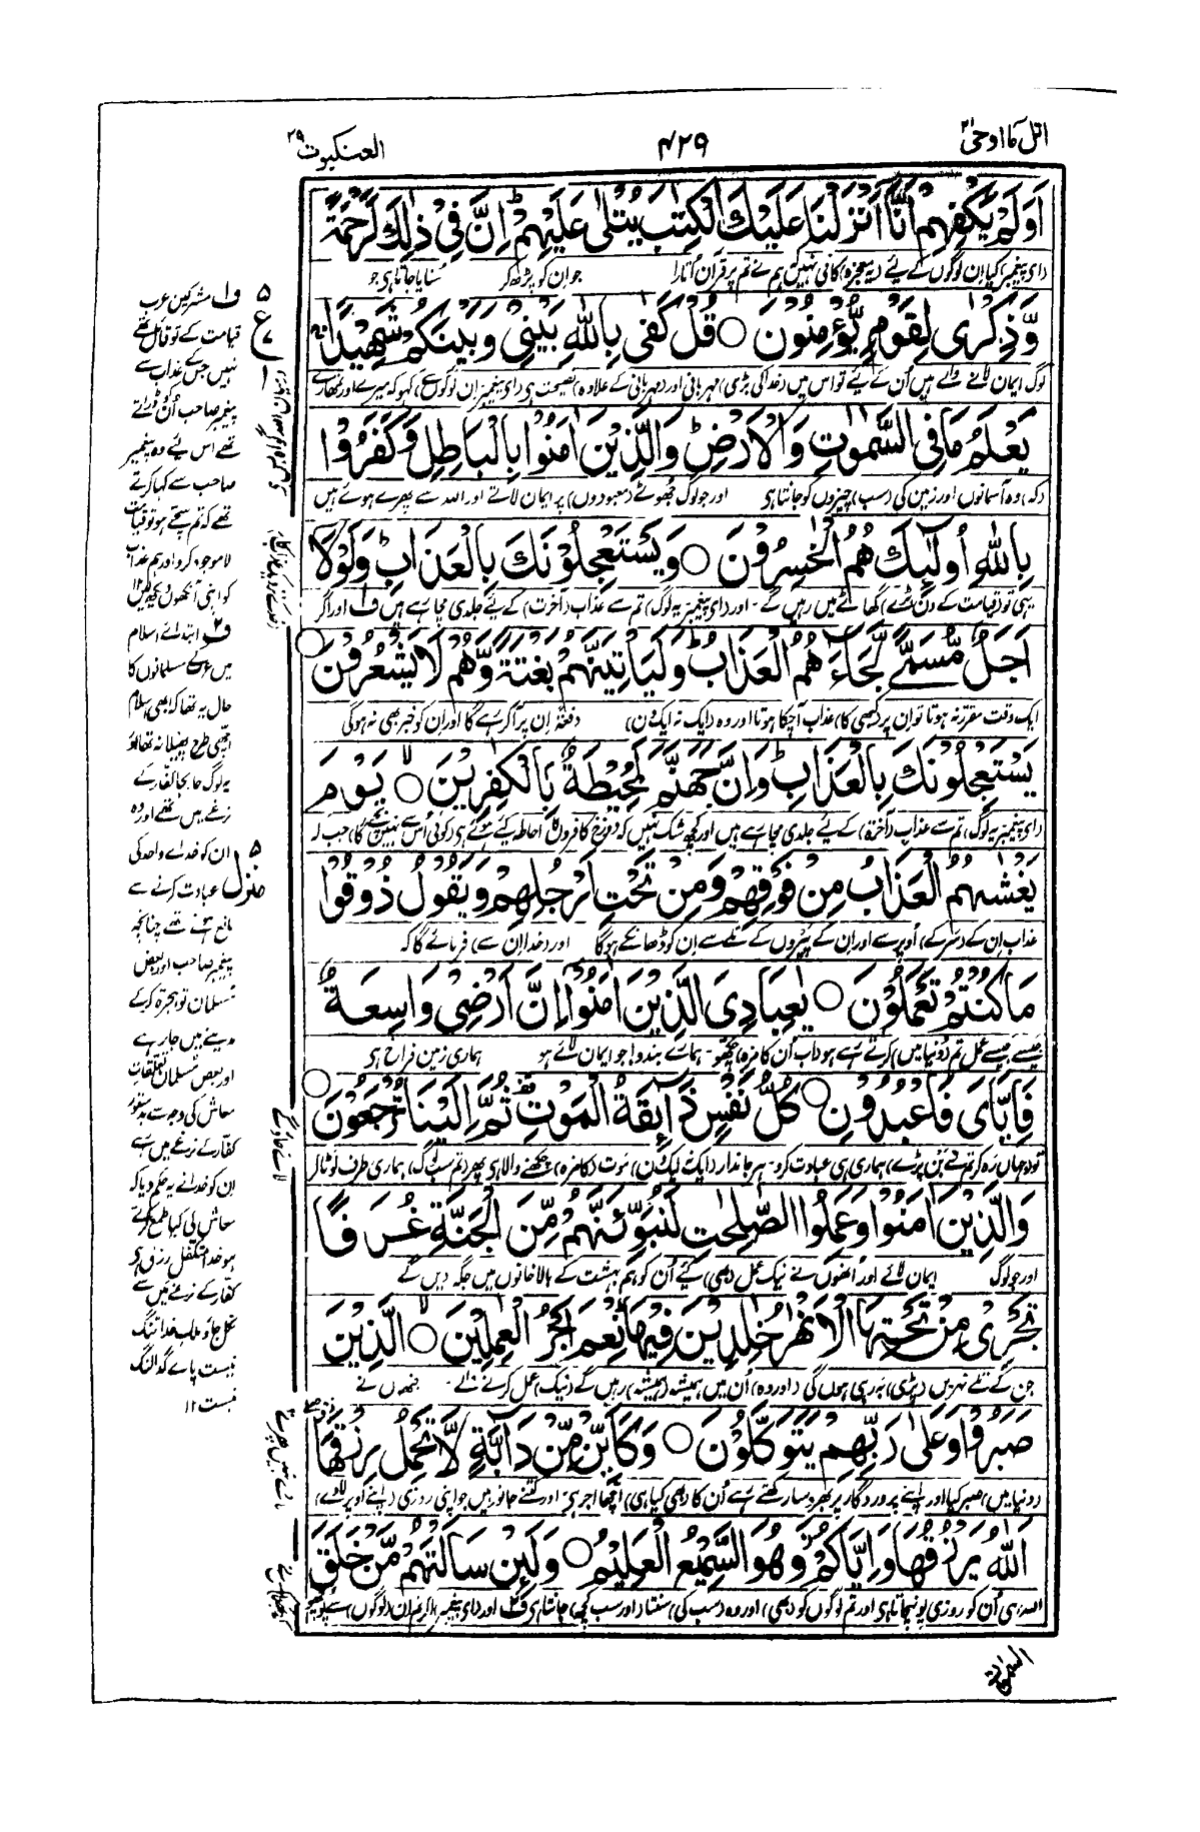 اتل ما اوحی ۲۱
۴۲۹
العنکبوت ۲۹
اَوَلَمْ يَكْفِهِمْ اَنَّآ اَنْزَلْنَا عَلَيْكَ الْكِتٰبَ يُتْلٰى عَلَيْهِمْ ؕ اِنَّ فِيْ ذٰلِكَ لَرَحْمَةً
(اے پیغمبر) کیا ان لوگوں کے لیے (یہ معجزہ) کافی نہیں کہ ہم نے تم پر قرآن اُتارا جو ان کو پڑھ کر سُنایا جاتا ہی جو
وَّذِكْرٰى لِقَوْمٍ يُّؤْمِنُوْنَ ○ قُلْ كَفٰى بِاللّٰهِ بَيْنِيْ وَبَيْنَكُمْ شَهِيْدًا ۚ
لوگ ایمان لانے والے ہیں اُن کے لیے تو اس میں (خدا کی بڑی) مہربانی اور (مہربانی کے علاوہ) نصیحت ہی (اے پیغمبر ان لوگوں سے) کہو کہ میرے اور تمھارے
يَعْلَمُ مَا فِي السَّمٰوٰتِ وَالْاَرْضِ ؕ وَالَّذِيْنَ اٰمَنُوْا بِالْبَاطِلِ وَكَفَرُوْا
(کہ) وہ آسمانوں اور زمین کی (سب) چیزوں کو جانتا ہی اور جو لوگ جُھوٹے (معبودوں) پر ایمان لاتے اور اللہ سے پھرے ہوئے ہیں
بِاللّٰهِ اُولٰٓئِكَ هُمُ الْخٰسِرُوْنَ ○ وَيَسْتَعْجِلُوْنَكَ بِالْعَذَابِ ؕ وَلَوْلَآ
یہی تو (قیامت کے دن بڑے) گھاٹے میں رہیں گے - اور (اے پیغمبر یہ لوگ) تم سے عذاب (آخرت) کے لیے جلدی مچا رہے ہیں ف۱ اور اگر
اَجَلٌ مُّسَمًّى لَّجَآءَهُمُ الْعَذَابُ ؕ وَلَيَاْتِيَنَّهُمْ بَغْتَةً وَّهُمْ لَا يَشْعُرُوْنَ ○
ایک وقت مقرر نہ ہوتا تو ان پر (کبھی کا) عذاب آچکا ہوتا اور وہ (ایک نہ ایک دن) دفعۃً ان پر آکر رہے گا اور ان کو خبر بھی نہ ہوگی
يَسْتَعْجِلُوْنَكَ بِالْعَذَابِ ؕ وَاِنَّ جَهَنَّمَ لَمُحِيْطَةٌۢ بِالْكٰفِرِيْنَ ○ يَوْمَ
(اے پیغمبر یہ لوگ) تم سے عذاب (آخرت) کے لیے جلدی مچا رہے ہیں اور کچھ شک نہیں کہ دوزخ کافروں کا احاطہ کیے ہوئے ہی (کوئی اُس سے نہیں بچے گا) جب کہ
يَغْشٰىهُمُ الْعَذَابُ مِنْ فَوْقِهِمْ وَمِنْ تَحْتِ اَرْجُلِهِمْ وَيَقُوْلُ ذُوْقُوْا
عذاب ان کے (سر کے) اُوپر سے اور ان کے پیروں کے تلے سے ان کو ڈھانکے ہوگا اور (خدا ان سے) فرمائے گا کہ
مَا كُنْتُمْ تَعْمَلُوْنَ ○ يٰعِبَادِيَ الَّذِيْنَ اٰمَنُوْٓا اِنَّ اَرْضِيْ وَاسِعَةٌ
جیسے جیسے عمل تم (دنیا میں) کرتے رہے ہو (اب) اُن کا مزہ چکھو - ہمارے بندو! جو ایمان لائے ہو ہماری زمین فراخ ہی
فَاِيَّايَ فَاعْبُدُوْنِ ○ كُلُّ نَفْسٍ ذَآئِقَةُ الْمَوْتِ ۫ ثُمَّ اِلَيْنَا تُرْجَعُوْنَ ○
تو (جہاں رہ کر تم سے بن پڑے) ہماری ہی عبادت کرو - ہر جاندار (ایک نہ ایک دن) موت (کا مزہ) چکھنے والا ہی پھر (تم سب لوگ) ہماری طرف لوٹا کر
وَالَّذِيْنَ اٰمَنُوْا وَعَمِلُوا الصّٰلِحٰتِ لَنُبَوِّئَنَّهُمْ مِّنَ الْجَنَّةِ غُرَفًا
اور جو لوگ ایمان لائے اور اُنھوں نے نیک عمل (بھی) کیے اُن کو ہم بہشت کے بالا خانوں میں جگہ دیں گے
تَجْرِيْ مِنْ تَحْتِهَا الْاَنْهٰرُ خٰلِدِيْنَ فِيْهَا ؕ نِعْمَ اَجْرُ الْعٰمِلِيْنَ ○ الَّذِيْنَ
جن کے تلے نہریں (پڑی) بہہ رہی ہوں گی (اور وہ) اُن میں ہمیشہ (ہمیشہ) رہیں گے (نیک) عمل کرنے والے - جنھوں نے
صَبَرُوْا وَعَلٰى رَبِّهِمْ يَتَوَكَّلُوْنَ ○ وَكَاَيِّنْ مِّنْ دَآبَّةٍ لَّا تَحْمِلُ رِزْقَهَا
(دنیا میں) صبر کیا اور اپنے پروردگار پر بھروسا رکھتے رہے اُن کا (بھی کیا ہی) اچھا اجر ہی اور کتنے جانور ہیں جو اپنی روزی (اپنے اُوپر لادے)
اَللّٰهُ يَرْزُقُهَا وَاِيَّاكُمْ ۖ وَهُوَ السَّمِيْعُ الْعَلِيْمُ ○ وَلَئِنْ سَاَلْتَهُمْ مَّنْ خَلَقَ
اللہ ہی اُن کو روزی پونہچاتا ہی اور تم لوگوں کو (بھی) اور وہ (سب کی) سنتا اور سب کچھ جانتا ہی ف۲ اور (اے پیغمبر) اگر تم ان (لوگوں) سے پوچھو
السمٰوٰت
۵
ع
ف۱ مشرکین عرب
قیامت کے تو قائل تھے
نہیں جس کے عذاب سے
پیغمبر صاحب اُن کو ڈراتے
تھے اس لیے وہ پیغمبر
صاحب سے کہا کرتے
تھے کہ تم سچے ہو تو قیامت
لا موجود کرو اور ہم عذاب
کو اپنی آنکھوں دیکھ لیں
ف۲ ابتدائے اسلام
میں مکے کے مسلمانوں کا
حال یہ تھا کہ ابھی اسلام
اچھی طرح پھیلا نہ تھا تو
یہ لوگ جا بجا کفار کے
نرغے میں تھے اور وہ
ان کو خدائے واحد کی
عبادت کرنے سے
مانع ہوتے تھے چنانچہ
پیغمبر صاحب اور بعض
مسلمان تو ہجرت کر کے
مدینے میں جا رہے
اور بعض مسلمان تعلقات
معاش کی وجہ سے بدستور
کفار کے نرغے میں رہے
ان کو خدا نے یہ حکم دیا کہ
معاش کی کیا طمع کرتے
ہو خدا متکفل رزق ہی
کفار کے نرغے میں سے
نکل جاؤ ملک خدا تنگ
نیست پائے گدا لنگ
نیست ۱۲
منزل ۵
لائے جاؤ گے